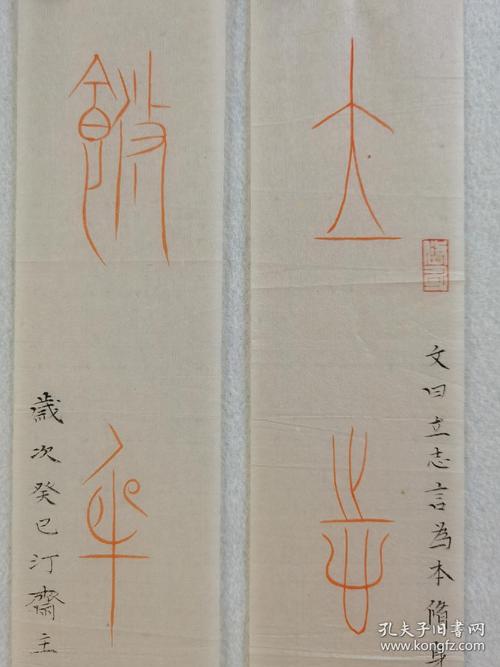 立志
文曰立志言為本脩身
歲次癸巳汀齋主
孔夫子旧书网